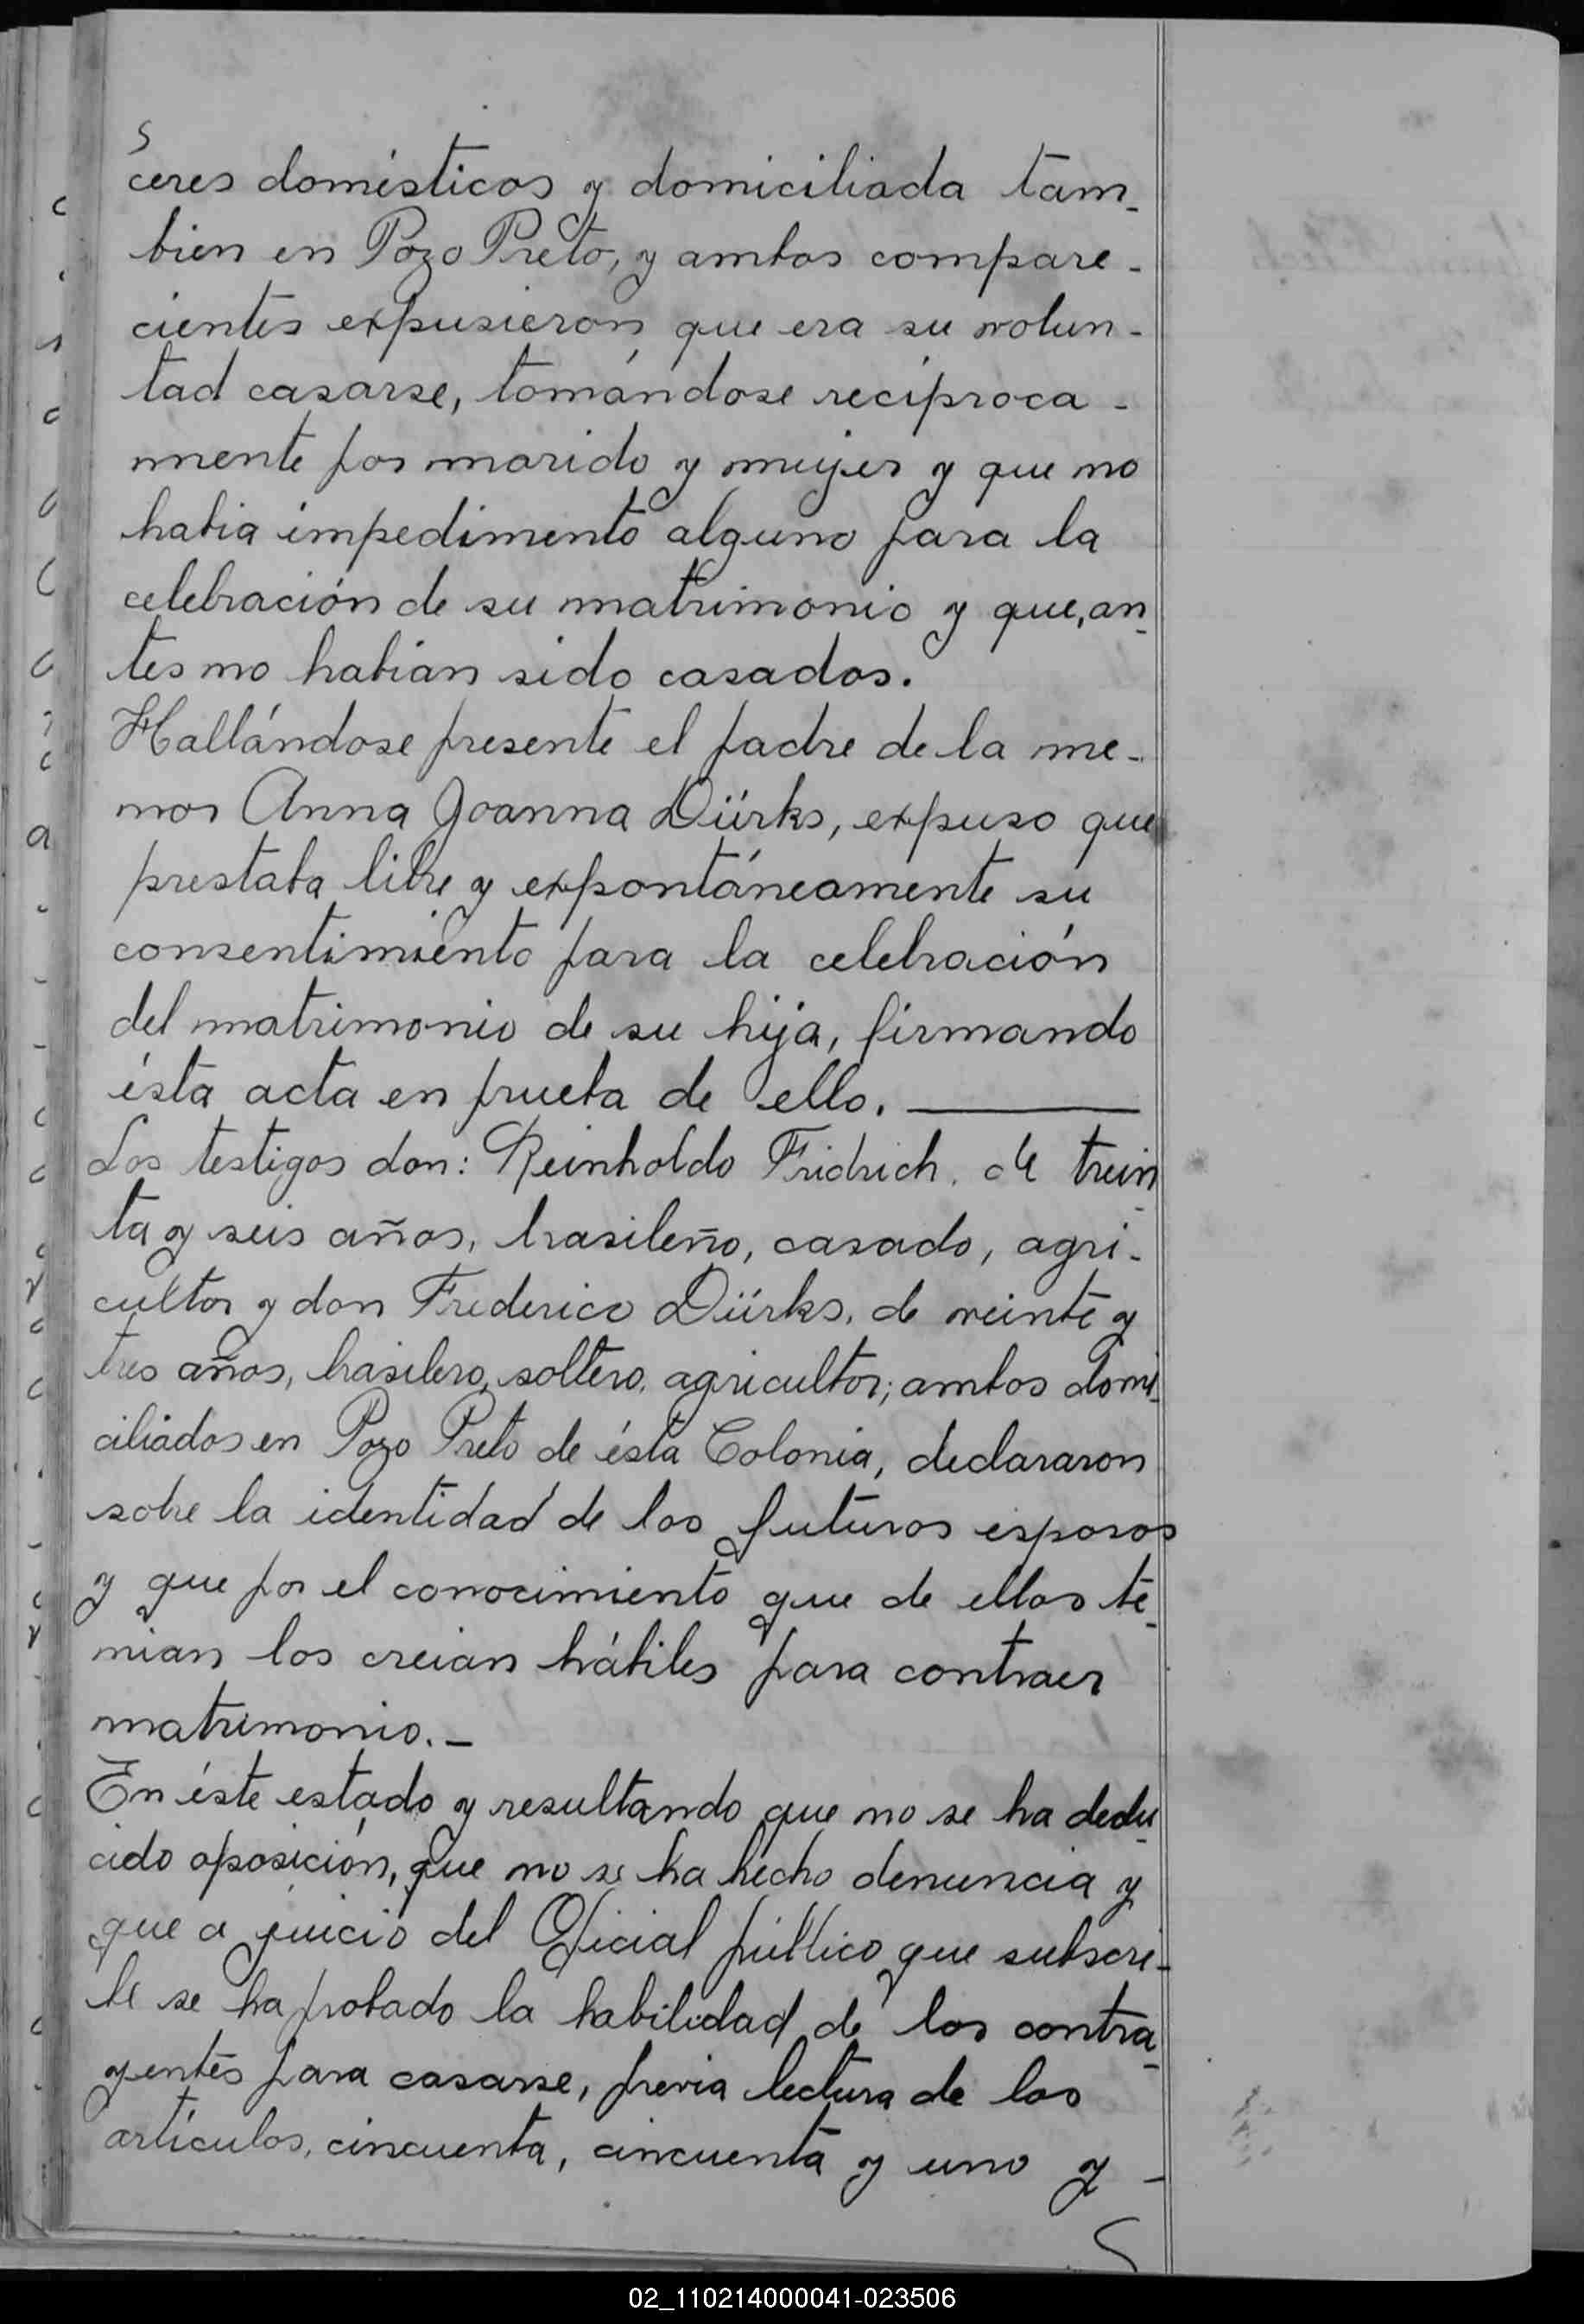 ceres domésticos y domiciliada tam-
bien en Pozo Preto, y ambos compare-
cientes expusieron que era su volun-
tad casarse, tomándose recíproca-
mente por marido y mujer y que no
habia impedimento alguno para la
celebración de su matrimonio y que, an-
tes no habían sido casados.
Hallándose presente el padre de la me-
nor Anna Joanna Dürks, expuso que
prestaba libre y expontáneamente su
consentimiento para la celebración
del matrimonio de su hija, firmando
ésta acta en prueba de ello.
Los testigos don: Reinholdo Fridrich, de trein-
ta y seis años, brasileño, casado, agri-
cultor y don Frederico Dürks, de veinte y
tres años, brasilero, soltero, agricultor; ambos domi-
ciliados en Pozo Preto de ésta Colonia, declararon
sobre la identidad de los futuros esposos
y que por el conocimiento que de ellos te-
nian los creian hábiles para contraer
matrimonio.-
En éste estado y resultando que no se ha dedu-
cido oposición, que no se ha hecho denuncia y
que a juicio del Oficial público que subscri-
be se ha probado la habilidad de los contra-
yentes para casarse, previa lectura de los
artículos, cincuenta, cincuenta y uno y -
02_110214000041-023506